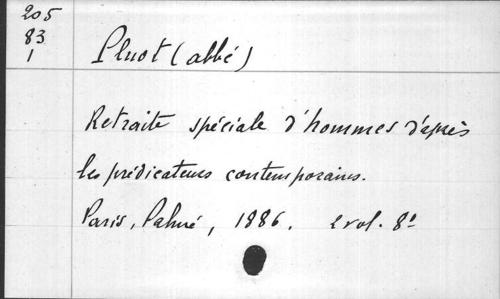 205
83
1
Pluot (abbé)
Retraite spéciale d'hommes d'après
les prédicateurs contemporains.
Paris, Palmé, 1886. 2 vol. 8°